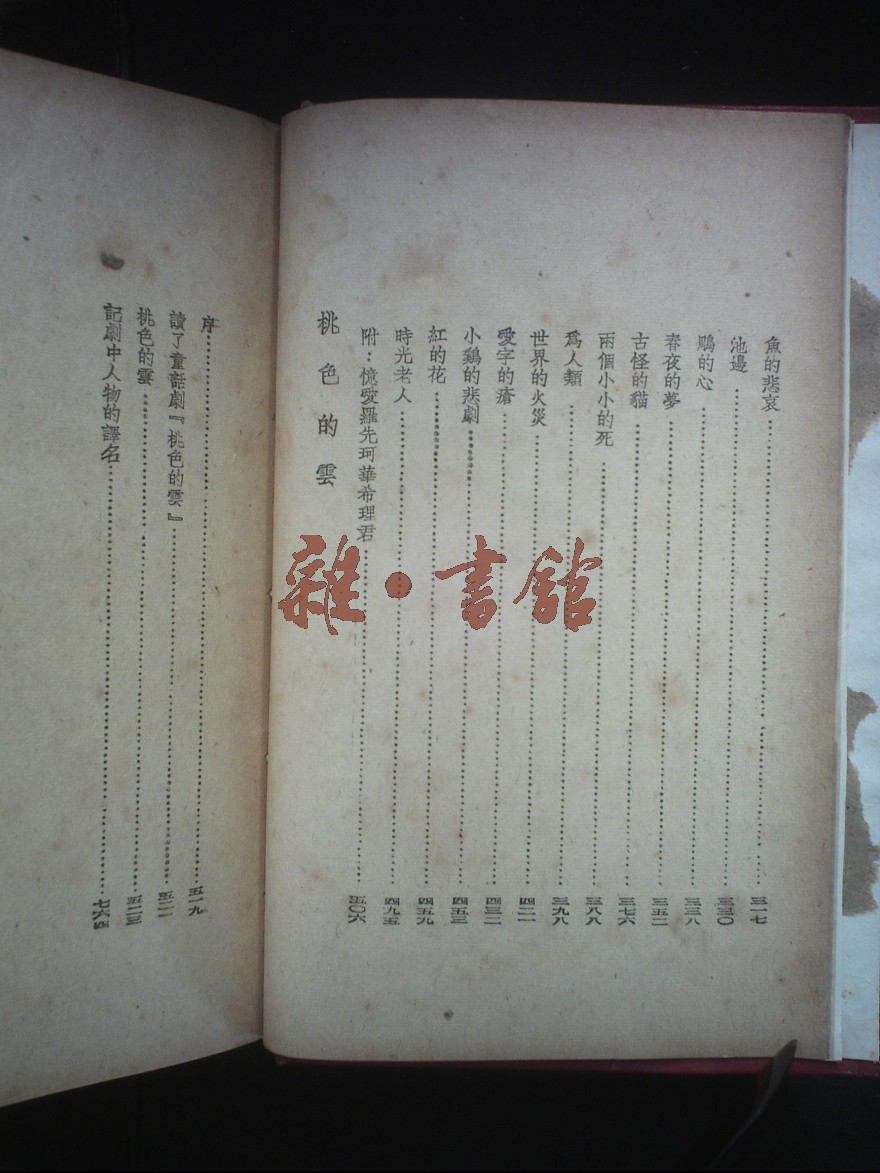 魚的悲哀……三一七
池邊……三三〇
鵰的心……三三八
春夜的夢……三五二
古怪的貓……三七六
兩個小小的死……三八八
爲人類……三九八
世界的火災……四二一
愛字的瘡……四三二
小鷄的悲劇……四五三
紅的花……四五九
時光老人……四九五
附：憶愛羅先珂華希理君……五〇六
桃色的雲
序……五一九
讀了童話劇『桃色的雲』……五二一
桃色的雲……五二三
記劇中人物的譯名……
雜·書館